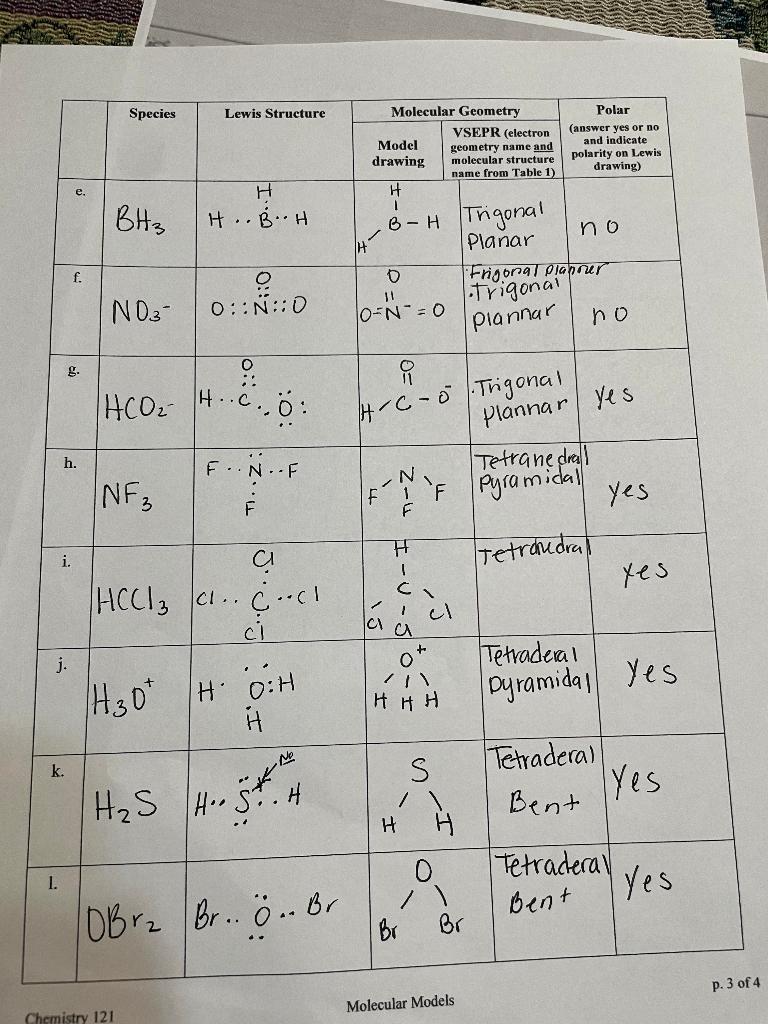 Species
Lewis Structure
Molecular Geometry
Polar
(answer yes or no
and indicate
polarity on Lewis
drawing)
Model
drawing
VSEPR (electron
geometry name and
molecular structure
name from Table 1)
e.
BH3
H
H .. B .. H
H
B - H
H
Trigonal
Planar
no
f.
NO3-
O
O :: N :: O
O
O=N- = O
Frigonal planner
.Trigonal
plannar
no
g.
HCO2-
O
H .. C .. O :
O
H C - O-
.Trigonal
plannar
yes
h.
NF3
F .. N .. F
F
N
F F
F
Tetranedrall
pyramidal
yes
i.
HCCl3
Cl
Cl .. C .. Cl
Cl
H
C
Cl Cl Cl
Tetraudral
yes
j.
H3O+
H . O : H
H
O+
H H H
Tetraderal
pyramidal
yes
k.
H2S
No
H .. S .. H
S
H H
Tetraderal
Bent
yes
l.
OBr2
Br .. O .. Br
O
Br Br
Tetraderal
Bent
yes
Chemistry 121
Molecular Models
p. 3 of 4